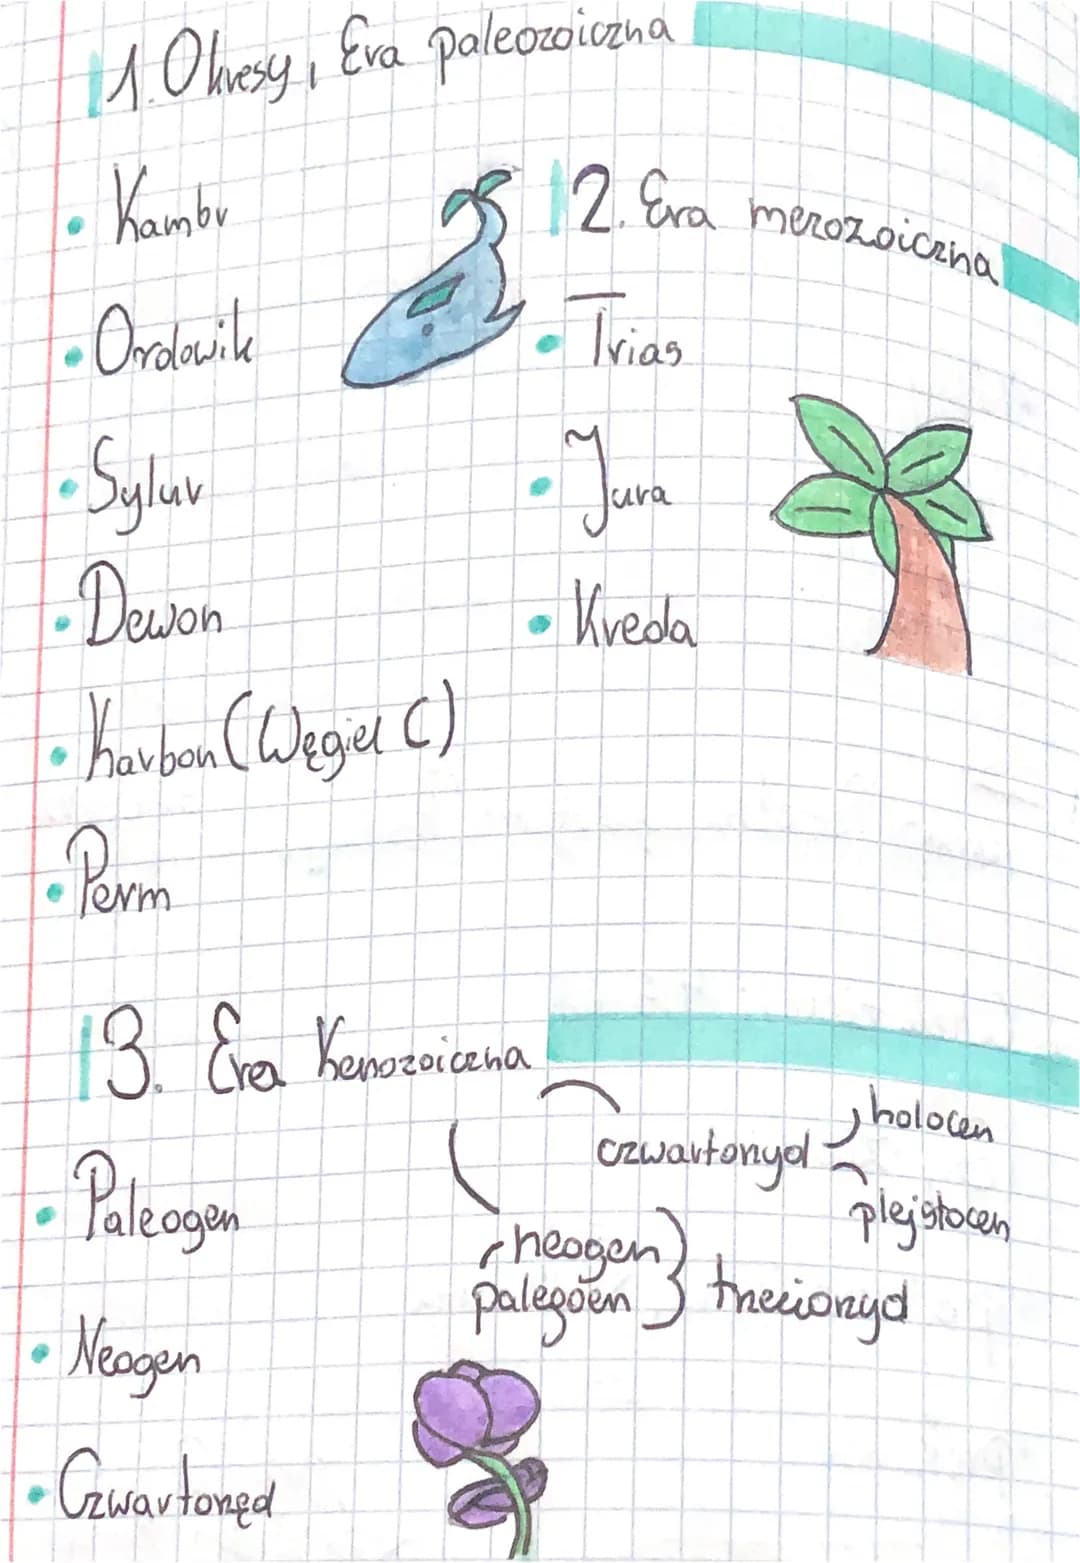 1. Okresy, Era paleozoiczna
• Kambr
• Ordowik
• Sylur
• Dewon
• Karbon (Węgiel C)
• Perm
2. Era merozoiczna
• Trias
• Jura
• Kreda
3. Era Kenozoiczna
• Paleogen
• Neogen
• Czwartoręd
czwartoryd
holocen
plejstocen
neogen
palegoen
trzecioryd